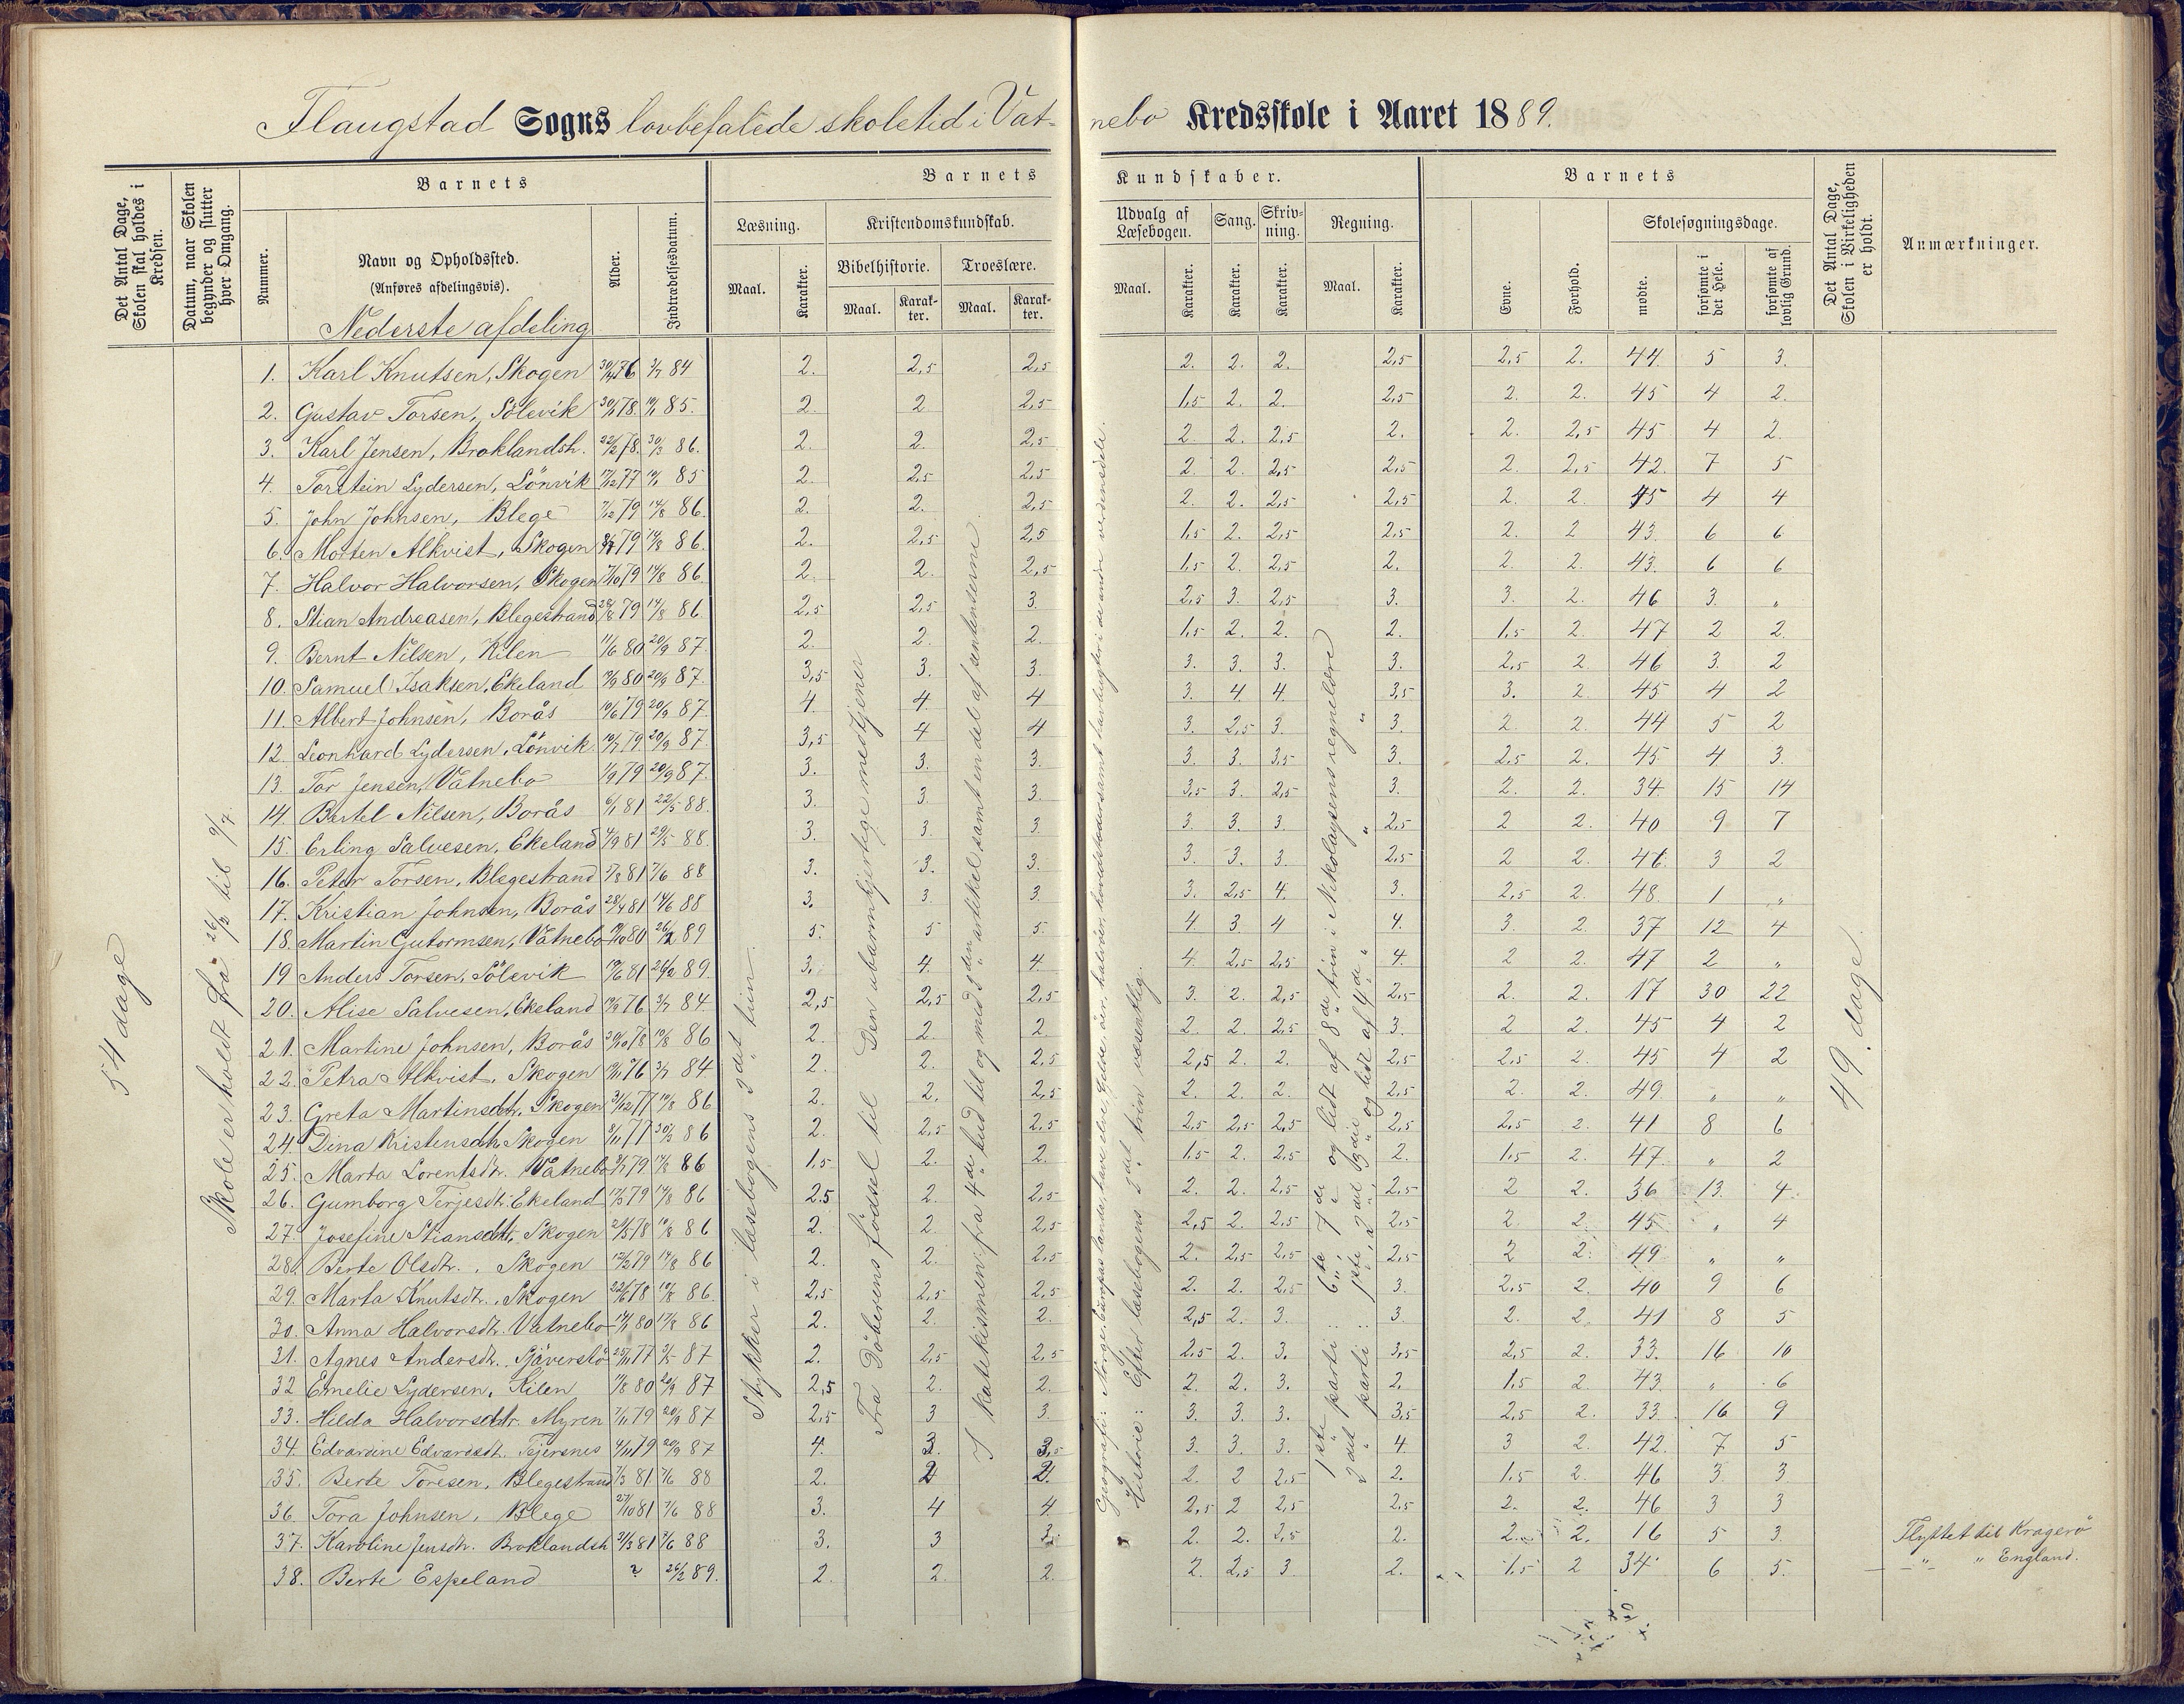 Flaugstad Sogns lovbefalede skoletid i Vatnebo Kredsskole i Aaret 1889.
Det Antal Dage, Skolen skal holdes i Kredsen.
Datum, naar Skolen begynder og slutter hver Omgang.
Barnets
Nummer.
Navn og Opholdssted.
(Anføres afdelingsvis).
Nederste afdeling
Alder.
Indtrædelsesdatum.
Barnets Kundskaber.
Læsning.
Maal.
Karakter.
Kristendomskundskab.
Bibelhistorie.
Maal.
Karakter.
Troeslære.
Maal.
Karakter.
Udvalg af Læsebogen.
Maal.
Karakter.
Sang.
Karakter.
Skrivning.
Karakter.
Regning.
Maal.
Karakter.
Barnets
Evne.
Forhold.
Skolesøgningsdage.
mødte.
forsømte i det Hele.
forsømte af lovlig Grund.
Det Antal Dage, Skolen i Virkeligheden er holdt.
Anmærkninger.
54 dage
Skole er holdt fra 26/2 til 9/7.
Stykker i læsebogens 2det trin.
Fra Døberens fødsel til Den ubarmhjertige medtjener
I katekismen fra 4de bud til og med 3den artikel samt en del af sentenserne
Historie: Efter læsebogens 2det trin væsentlig.
1ste parti 6te, 7de og lidt af 8de trin i Nikolaysens regnelære
2det parti 1ste, 2det 3die og lidt af 4de
49 dage
1. Karl Knutsen, Skogen 76 3/7 84 2. 2,5 2,5 2. 2. 2. 2,5 2,5 2. 44. 5 3.
2. Gustav Torsen, Sölevik 78. 85. 2. 2 2,5 1,5 2. 2. 2,5 2. 2. 45 4 2.
3. Karl Jensen, Broklandsh. 22/2 78. 30/3 86. 2. 2. 2,5 2. 2. 2,5 2. 2. 2,5 45 4 2.
4. Torstein Lydersen, Lönvik 17/12 77 85 2. 2,5 2,5 2. 2. 2,5 2,5 2. 2,5 42. 7 5
5. John Johnsen, Blege 7/12 79 14/8 86. 2. 2. 2,5 2. 2. 2,5 2,5 2. 2. 45 4 4
6. Morten Alkvist, Skogen 79 14/8 86. 2. 2,5 2,5 1,5 2. 2,5 2,5 2. 2 43. 6 6
7. Halvor Halvorsen, Skogen 7/10 79 14/8 86. 2. 2. 2,5 1,5 2. 2,5 2. 2. 2. 43. 6 6
8. Stian Andreasen, Blegestrand 28/8 79 14/8 86. 2,5 2,5 3. 2,5 3. 2,5 3. 3. 2. 46 3. "
9. Bernt Nilsen, Kilen 11/6 80 20/9 87. 2. 2. 2. 1,5 2. 2. 2. 1,5 2. 47 2 2.
10. Samuel Isaksen, Ekeland 80 20/9 87. 3,5 3. 3. 3. 3. 3. 3. 2,5 2 46 3. 2
11. Albert Johnsen, Borås 10/6 79 20/9 87. 4. 4. 4 3. 4. 4. 3,5 3. 2. 45 4 2
12. Leonhard Lydersen, Lönvik 10/7 79 20/9 87. 3,5 4 4 3. 2,5 3. 3. 2. 2. 44 5 2
13. Tor Jensen, Vatnebo 1/9 79 20/9 87. 3. 3. 3. 3. 3. 3,5 3. 2,5 2. 45 4 3.
14. Bertel Nilsen, Borås 6/1 81 22/5 88. 3. 3. 3. 3,5 3. 2,5 3. 2. 2. 34 15 14
15. Erling Salvesen, Ekeland 4/9 81 88. 3. 3. 3. 3. 3. 3. 2,5 2 2. 40 9 7
16. Peter Torsen, Blegestrand 81 7/6 88 3. 3. 3. 3. 3. 3. 2,5 2 2. 46. 3 2
17. Kristian Johnsen, Borås 28/4 81 14/6 88 3. 3. 3. 3. 2,5 4. 3. 2,5 2. 48. 1 "
18. Martin Gutormsen, Vatnebo 80 26/2 89 5. 5 5. 4. 3 4 4. 3. 2. 37 12 4
19 Anders Torsen, Sölevik 81 26/2 89. 3. 4. 4. 4. 2,5 2,5 4. 2 2. 47 2 "
20. Alise Salvesen, Ekeland 76 3/7 84. 2,5 2,5 2,5 3. 2. 2,5 2,5 2. 2. 17 30 22
21. Martine Johnsen, Borås 78 86 2. 2. 2. 2. 2. 2,5 3. 2 2. 45 4 2
22. Petra Alkvist, Skogen 76 3/7 84 2. 2. 2,5 2,5 2. 2. 2,5 2,5 2. 45 4 2
23. Greta Martinsdtr. Skogen 77 86 2. 2. 2,5 2. 2. 2. 2,5 2. 2. 49. " "
24. Dina Kristensdtr. Skogen 8/11 77 30/3 86 2. 2,5 2,5 2,5 2,5 2,5 2,5 2,5 2. 41 8 6
25. Marta Lorentsdtr. Vatnebo 79 86 1,5 2. 2. 1,5 2. 2,5 2. 1,5 2. 47. " 2
26. Gumborg Terjesdtr. Ekeland 79 86 2,5 2. 2,5 2. 2. 2,5 2,5 2 2. 36 13. 4.
27. Josefine Stiansdtr. Skogen 78 86 2. 2. 2,5 2,5 2. 2,5 2,5 2 2. 45 " 4
28. Berte Olsdtr., Skogen 79 14/8 86 2. 2. 2,5 2. 2,5 2,5 2,5 2 2. 49 " "
29. Marta Knutsdtr., Skogen 78 86. 2,5 2,5 2,5 2. 2. 2,5 3. 2,5 2. 40 9 6
30. Anna Halvorsdtr. Vatnebo 80 86 2. 2. 2. 2,5 2. 3. 3. 2. 2. 41 8 5
31. Agnes Andersdtr. 77 87 2. 2,5 2,5 2,5 2. 3. 3,5 2,5 2. 33. 16 10
32 Emelie Lydersen, Kilen 80 20/9 87 2,5 2. 2. 2. 2. 3. 2. 1,5 2. 43. " 6
33. Hilda Halvorsdtr. Myren 7/11 79 20/9 87 2,5 3 3. 3. 3. 3. 3,5 2,5 2. 33. 16 9
34. Edvardine Edvardsdt. 4/11 79 20/9 87 4. 3. 3,5 3. 3. 3. 4. 3 2. 42. 7 5
35. Berte Toresen, Blegestrand 7/3 81 7/6 88 2. 2 2. 2. 2 2,5 2. 1,5 2. 46 3. 3
36. Tora Johnsen, Blege 27/10 81 7/6 88 3. 4 4. 2,5 2 2,5 2,5 2. 2. 46 3 3
37. Karoline Jensdtr. Broklandsh 81 7/6 88 3. 3 2. 2. 2,5 2. 2. 2. 16 5 3. Flyttet til Kragerö
38. Berte Espeland ? 26/2 89. 2. 2. 2. 2. 2,5 3 2. 1,5 2 34 6 5. " " England.